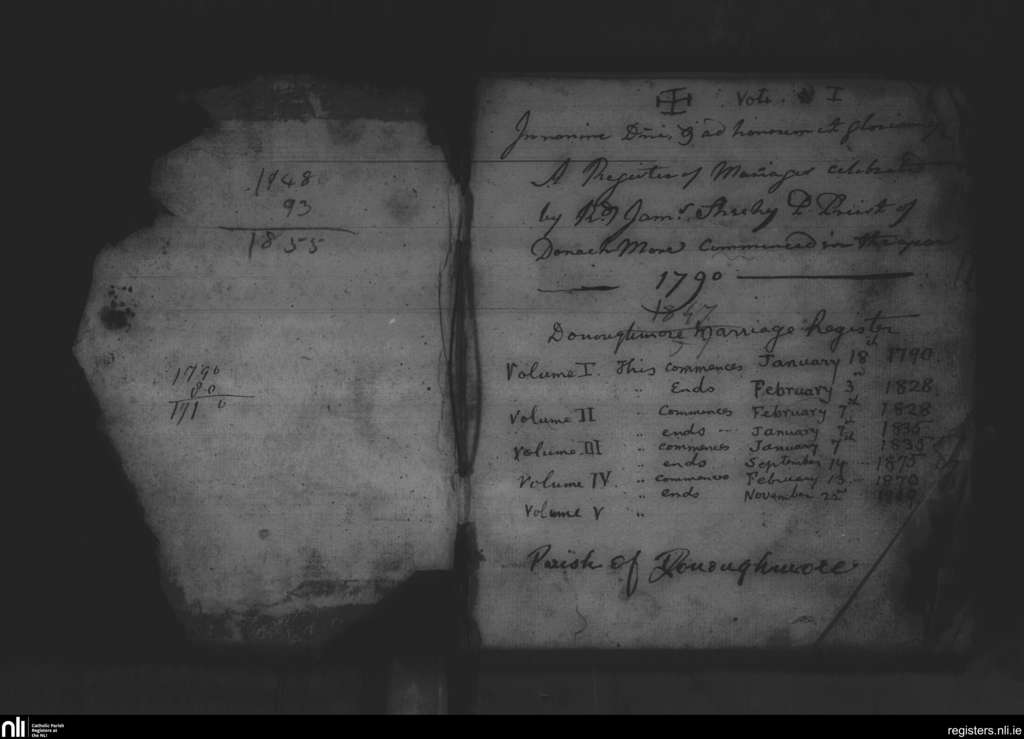 1948
93
1855
1790
80
1710
Vol. I
In nomine Dmi, & ad honorem et gloriam
A Register of Mariages celebrated
by Rd Jams. Sheehy P Priest of
Donach More commenced in the year
1790
1847
Donoughmore Marriage Register
Volume I. This commences January 18th 1790
" Ends February 3rd 1828
Volume II " Commences February 7th 1828
" ends January 7th 1835
Volume III " commences January 7th 1835
" ends September 14 1875
Volume IV " commences February 13 1870
" ends November 25th
Volume V "
Parish of Donoughmore
nli
Catholic Parish
Registers at
the NLI
registers.nli.ie